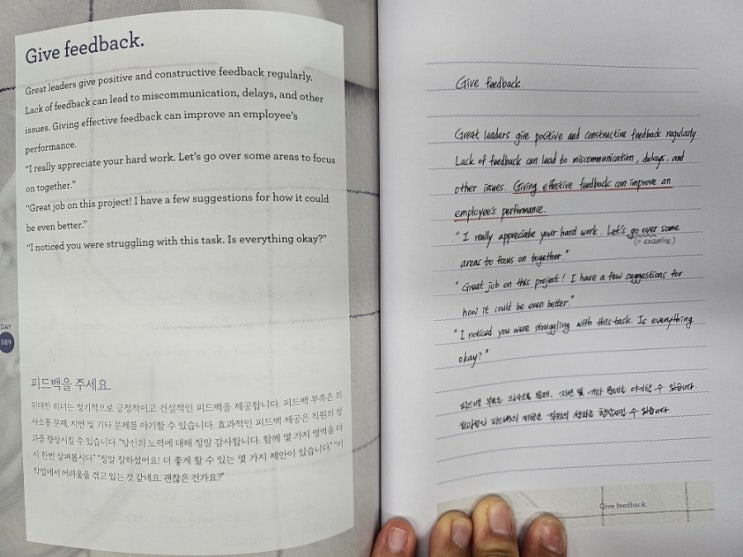 Give feedback.
Great leaders give positive and constructive feedback regularly.
Lack of feedback can lead to miscommunication, delays, and other
issues. Giving effective feedback can improve an employee's
performance.
"I really appreciate your hard work. Let's go over some areas to focus
on together."
"Great job on this project! I have a few suggestions for how it could
be even better."
"I noticed you were struggling with this task. Is everything okay?"
DAY
089
피드백을 주세요.
위대한 리더는 정기적으로 긍정적이고 건설적인 피드백을 제공합니다. 피드백 부족은 의
사소통 문제, 지연 및 기타 문제를 야기할 수 있습니다. 효과적인 피드백 제공은 직원의 성
과를 향상시킬 수 있습니다. "당신의 노력에 대해 정말 감사합니다. 함께 몇 가지 영역을 다
시 한번 살펴봅시다." "정말 잘하셨어요! 더 좋게 할 수 있는 몇 가지 제안이 있습니다." "이
작업에서 어려움을 겪고 있는 것 같네요. 괜찮은 건가요?"
Give feedback.
Great leaders give positive and constructive feedback regularly.
Lack of feedback can lead to miscommunication, delays, and
other issues. Giving effective feedback can improve an
employee's performance.
"I really appreciate your hard work. Let's go over some
(= examine)
areas to focus on together."
"Great job on this project! I have a few suggestions for
how it could be even better."
"I noticed you were struggling with this task. Is everything
okay?"
피드백 부족은 의사소통 문제, 지연 및 기타 문제를 야기할 수 있습니다.
효과적인 피드백의 제공은 직원의 성과를 향상시킬 수 있습니다.
Give feedback.